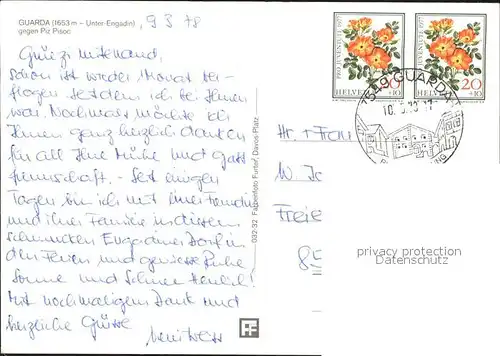 GUARDA (1653 m – Unter-Engadin)
gegen Piz Pisoc
9 3 78
Grüezi mitenand,
schon ist wieder 1 Monat ver-
flogen seitdem ich bei Ihnen
war. Nochmals möchte ich
Ihnen ganz herzlich danken
für all Ihre Mühe und Gast
freundschaft. - Seit einigen
Tagen bin ich mit einer Freundin
und ihrer Familie in diesem
schmucken Engadiner Dorf in
den Ferien und geniesse Ruhe
Sonne und Schnee herrlich!
Mit nochmaligem Dank und
herzliche Grüsse
032-32 Farbenfoto Furter, Davos-Platz
FF
PRO JUVENTUTE 1977
HELVETIA
20
+10
PRO JUVENTUTE 1977
HELVETIA
20
+10
7549 GUARDA
Hr. + Frau
W. Ja
Freie
85
privacy protection
Datenschutz